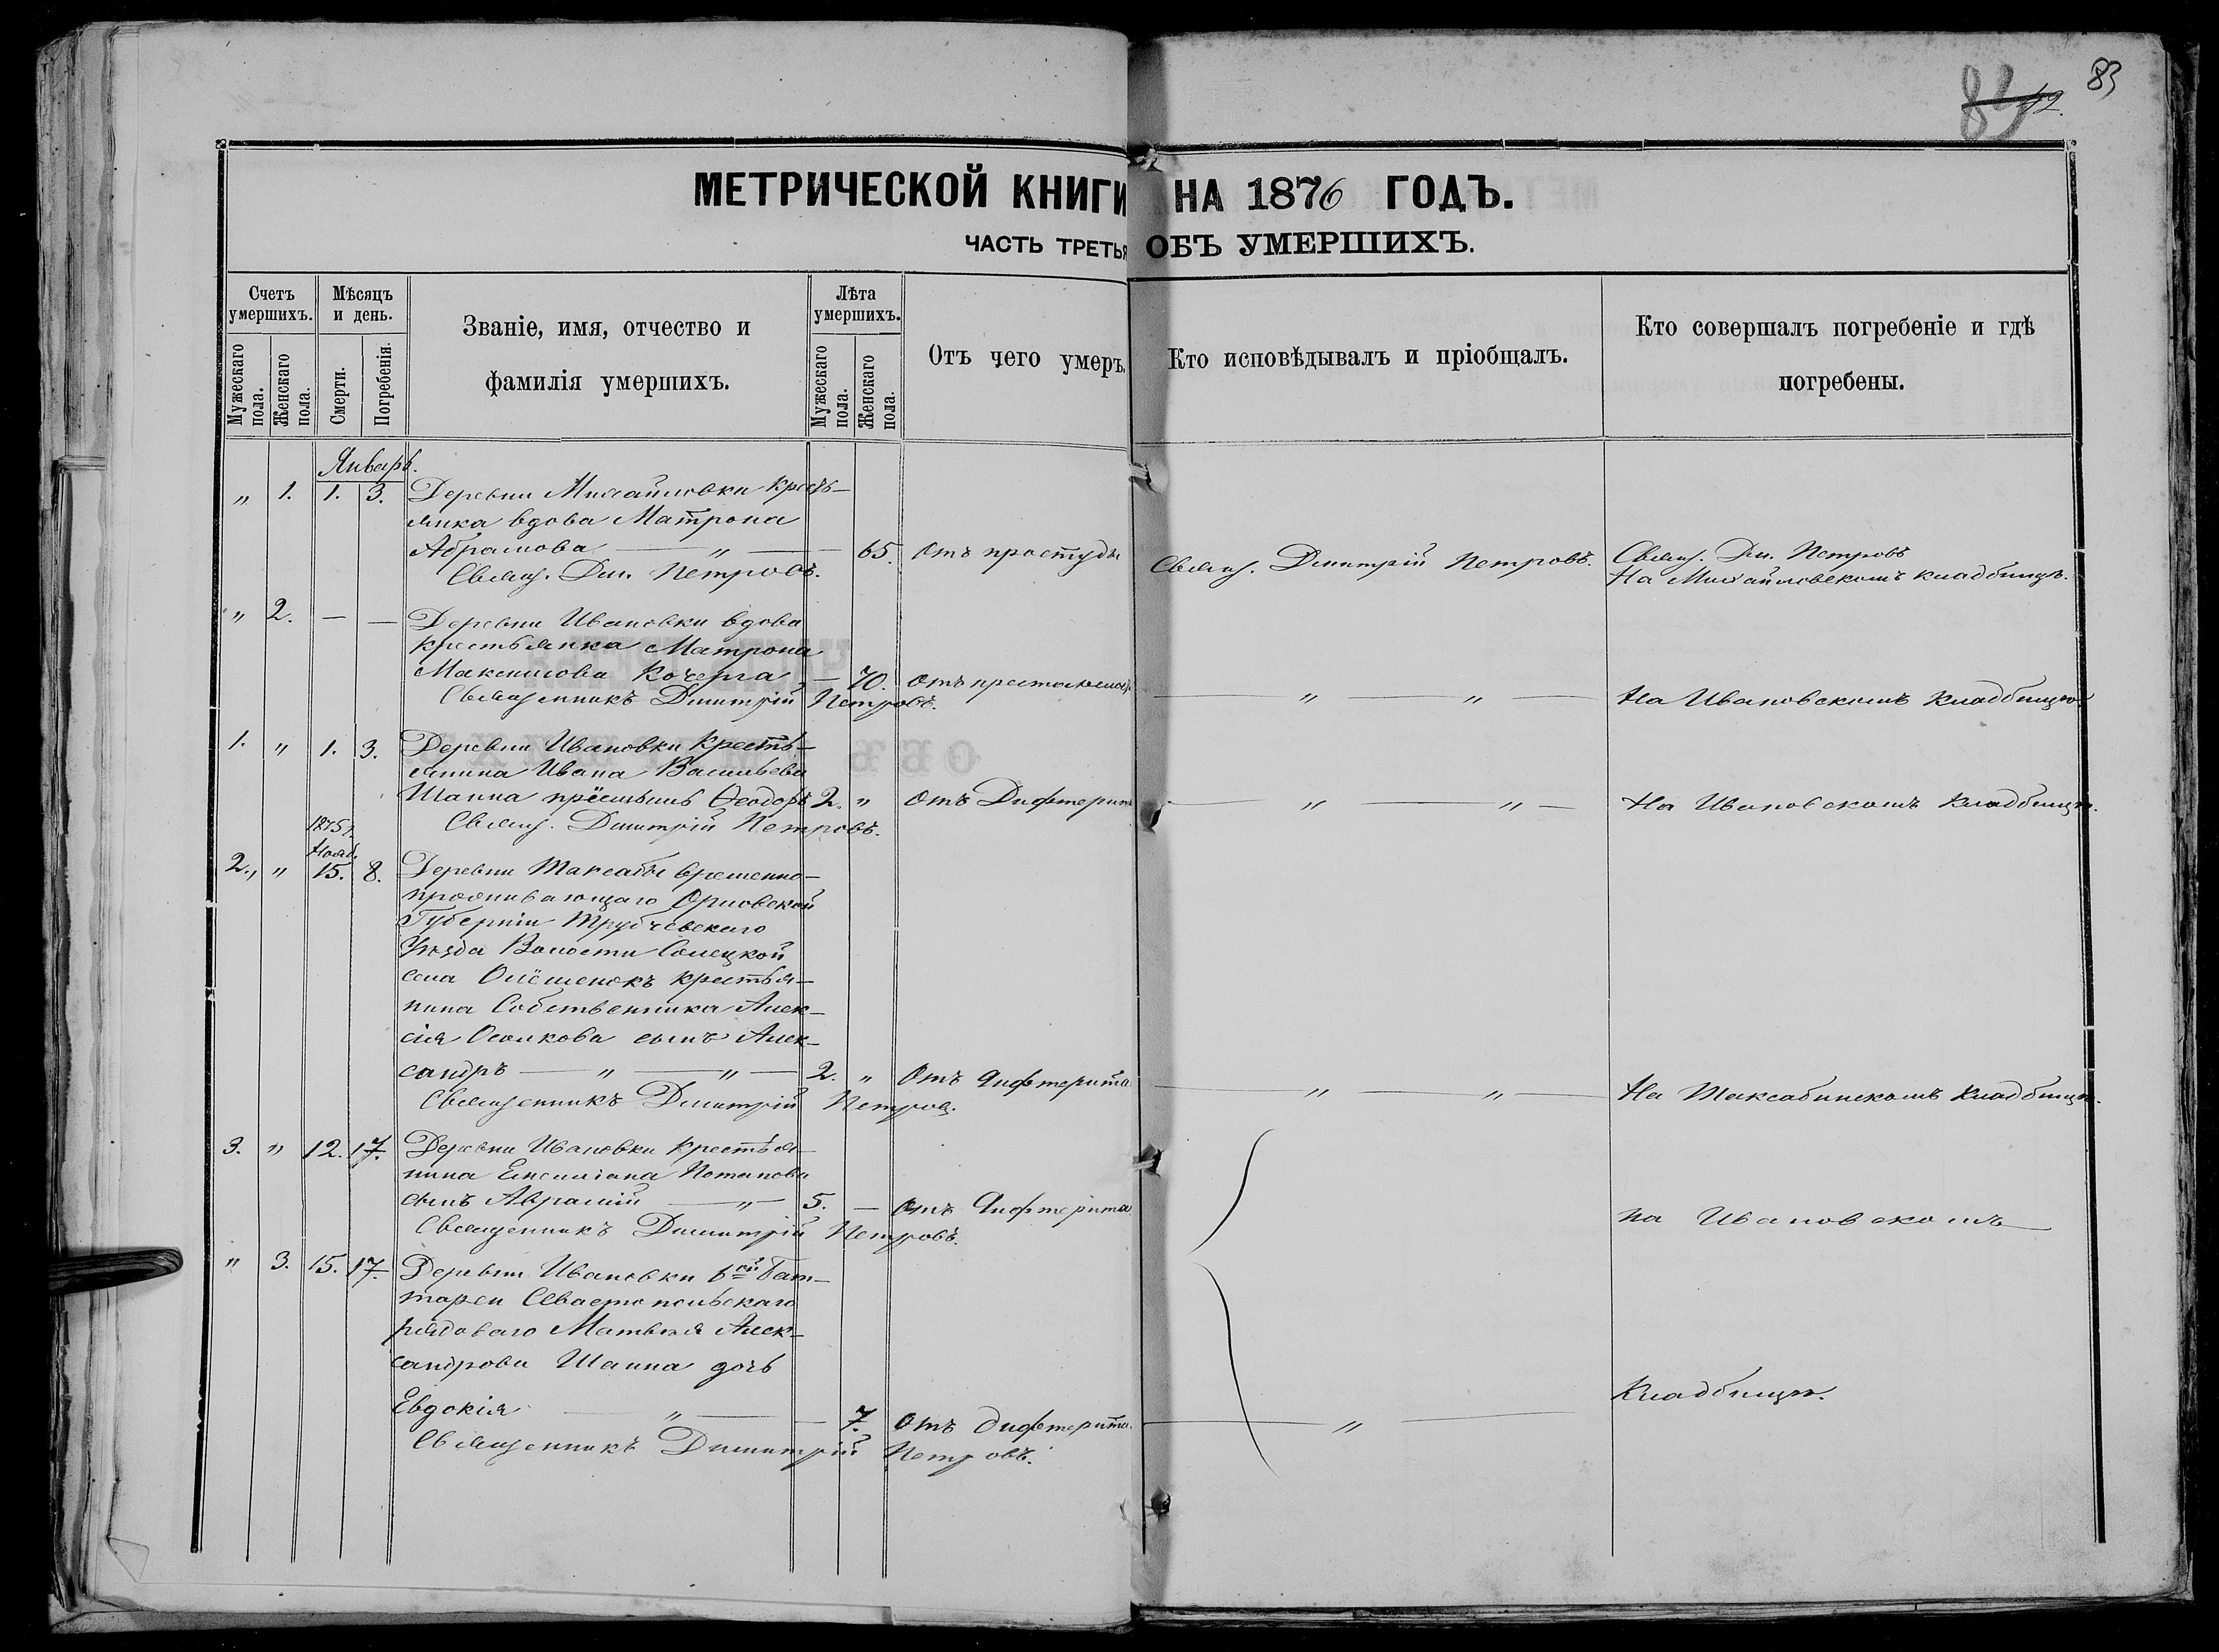 83
МЕТРИЧЕСКОЙ КНИГИ НА 1876 ГОДЪ.
ЧАСТЬ ТРЕТЬЯ ОБЪ УМЕРШИХЪ.
Счетъ умершихъ.
Мужескаго пола.
Женскаго пола.
Мѣсяцъ и день.
Смерти.
Погребенія.
Званіе, имя, отчество и
фамилія умершихъ.
Лѣта умершихъ.
Мужескаго пола.
Женскаго пола.
Отъ чего умеръ.
Кто исповѣдывалъ и пріобщалъ.
Кто совершалъ погребеніе и гдѣ
погребены.
Январь.
" 1. 1. 3. Деревни Михайловки кресть-
янка вдова Матрона
Абрамова — " — 65. Отъ простуды Священ. Димитрій Петровъ. Священ. Дм. Петровъ
Священ. Дм. Петровъ. На Михайловскомъ кладбищѣ.
" 2. — — Деревни Ивановки вдова
крестьянка Матрона
Максимова Кочерга — 70. Отъ — " — " — На Ивановскомъ кладбищѣ
Священникъ Димитрій Петровъ.
1. " 1. 3. Деревни Ивановки кресть-
янина Ивана Васильева
Шапна Ѳеодоръ 2. " Отъ Дифтерита — " — " — На Ивановскомъ кладбищѣ.
Священ. Димитрій Петровъ.
1875 г.
Нояб.
2. " 15. 8. Деревни Таксабы временно-
проживающаго Орловской
Губерніи Трубчевскаго
Уѣзда Волости Солецкой
села крестья-
нина Собственника Алек-
сія Осолкова сынъ Алек-
сандръ — " — " — 2. " Отъ дифтерита — " — " — На Таксабинскомъ кладбищѣ.
Священникъ Димитрій Петров.
3. " 12. 17. Деревни Ивановки крестья-
нина Емиліана Потапова
сынъ Аврамій — " — 5. — Отъ дифтерита на Ивановскомъ
Священникъ Димитрій Петровъ.
" 3. 15. 17. Деревни Ивановки 6ой Бат-
тареи Севастопольскаго
рядоваго Матвѣя Алек-
сандрова Шапна дочь
Евдокія — " — — 7. Отъ дифтерита. — " — Кладбищѣ.
Священникъ Димитрій Петровъ.